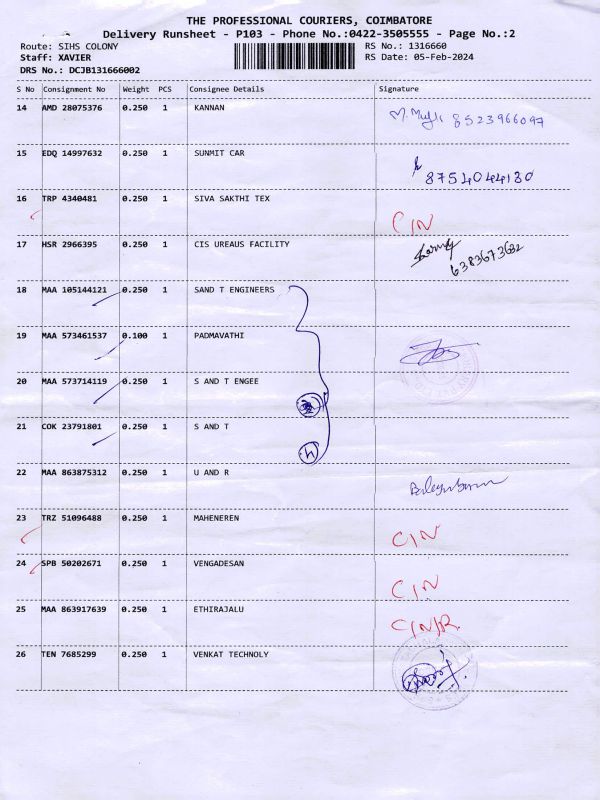 THE PROFESSIONAL COURIERS, COIMBATORE
Delivery Runsheet - P103 - Phone No.:0422-3505555 - Page No.:2
Route: SIHS COLONY RS No.: 1316660
Staff: XAVIER RS Date: 05-Feb-2024
DRS No.: DCJB131666002
S No Consignment No Weight PCS Consignee Details Signature
14 AMD 28075376 0.250 1 KANNAN
8523966097
15 EDQ 14997632 0.250 1 SUNMIT CAR
8754044130
16 TRP 4340481 0.250 1 SIVA SAKTHI TEX
CIN
17 HSR 2966395 0.250 1 CIS UREAUS FACILITY
6383673682
18 MAA 105144121 0.250 1 SAND T ENGINEERS
19 MAA 573461537 0.100 1 PADMAVATHI
20 MAA 573714119 0.250 1 S AND T ENGEE
21 COK 23791801 0.250 1 S AND T
22 MAA 863875312 0.250 1 U AND R
23 TRZ 51096488 0.250 1 MAHENEREN
CIN
24 SPB 50202671 0.250 1 VENGADESAN
CIN
25 MAA 863917639 0.250 1 ETHIRAJALU
CIN/R
26 TEN 7685299 0.250 1 VENKAT TECHNOLY